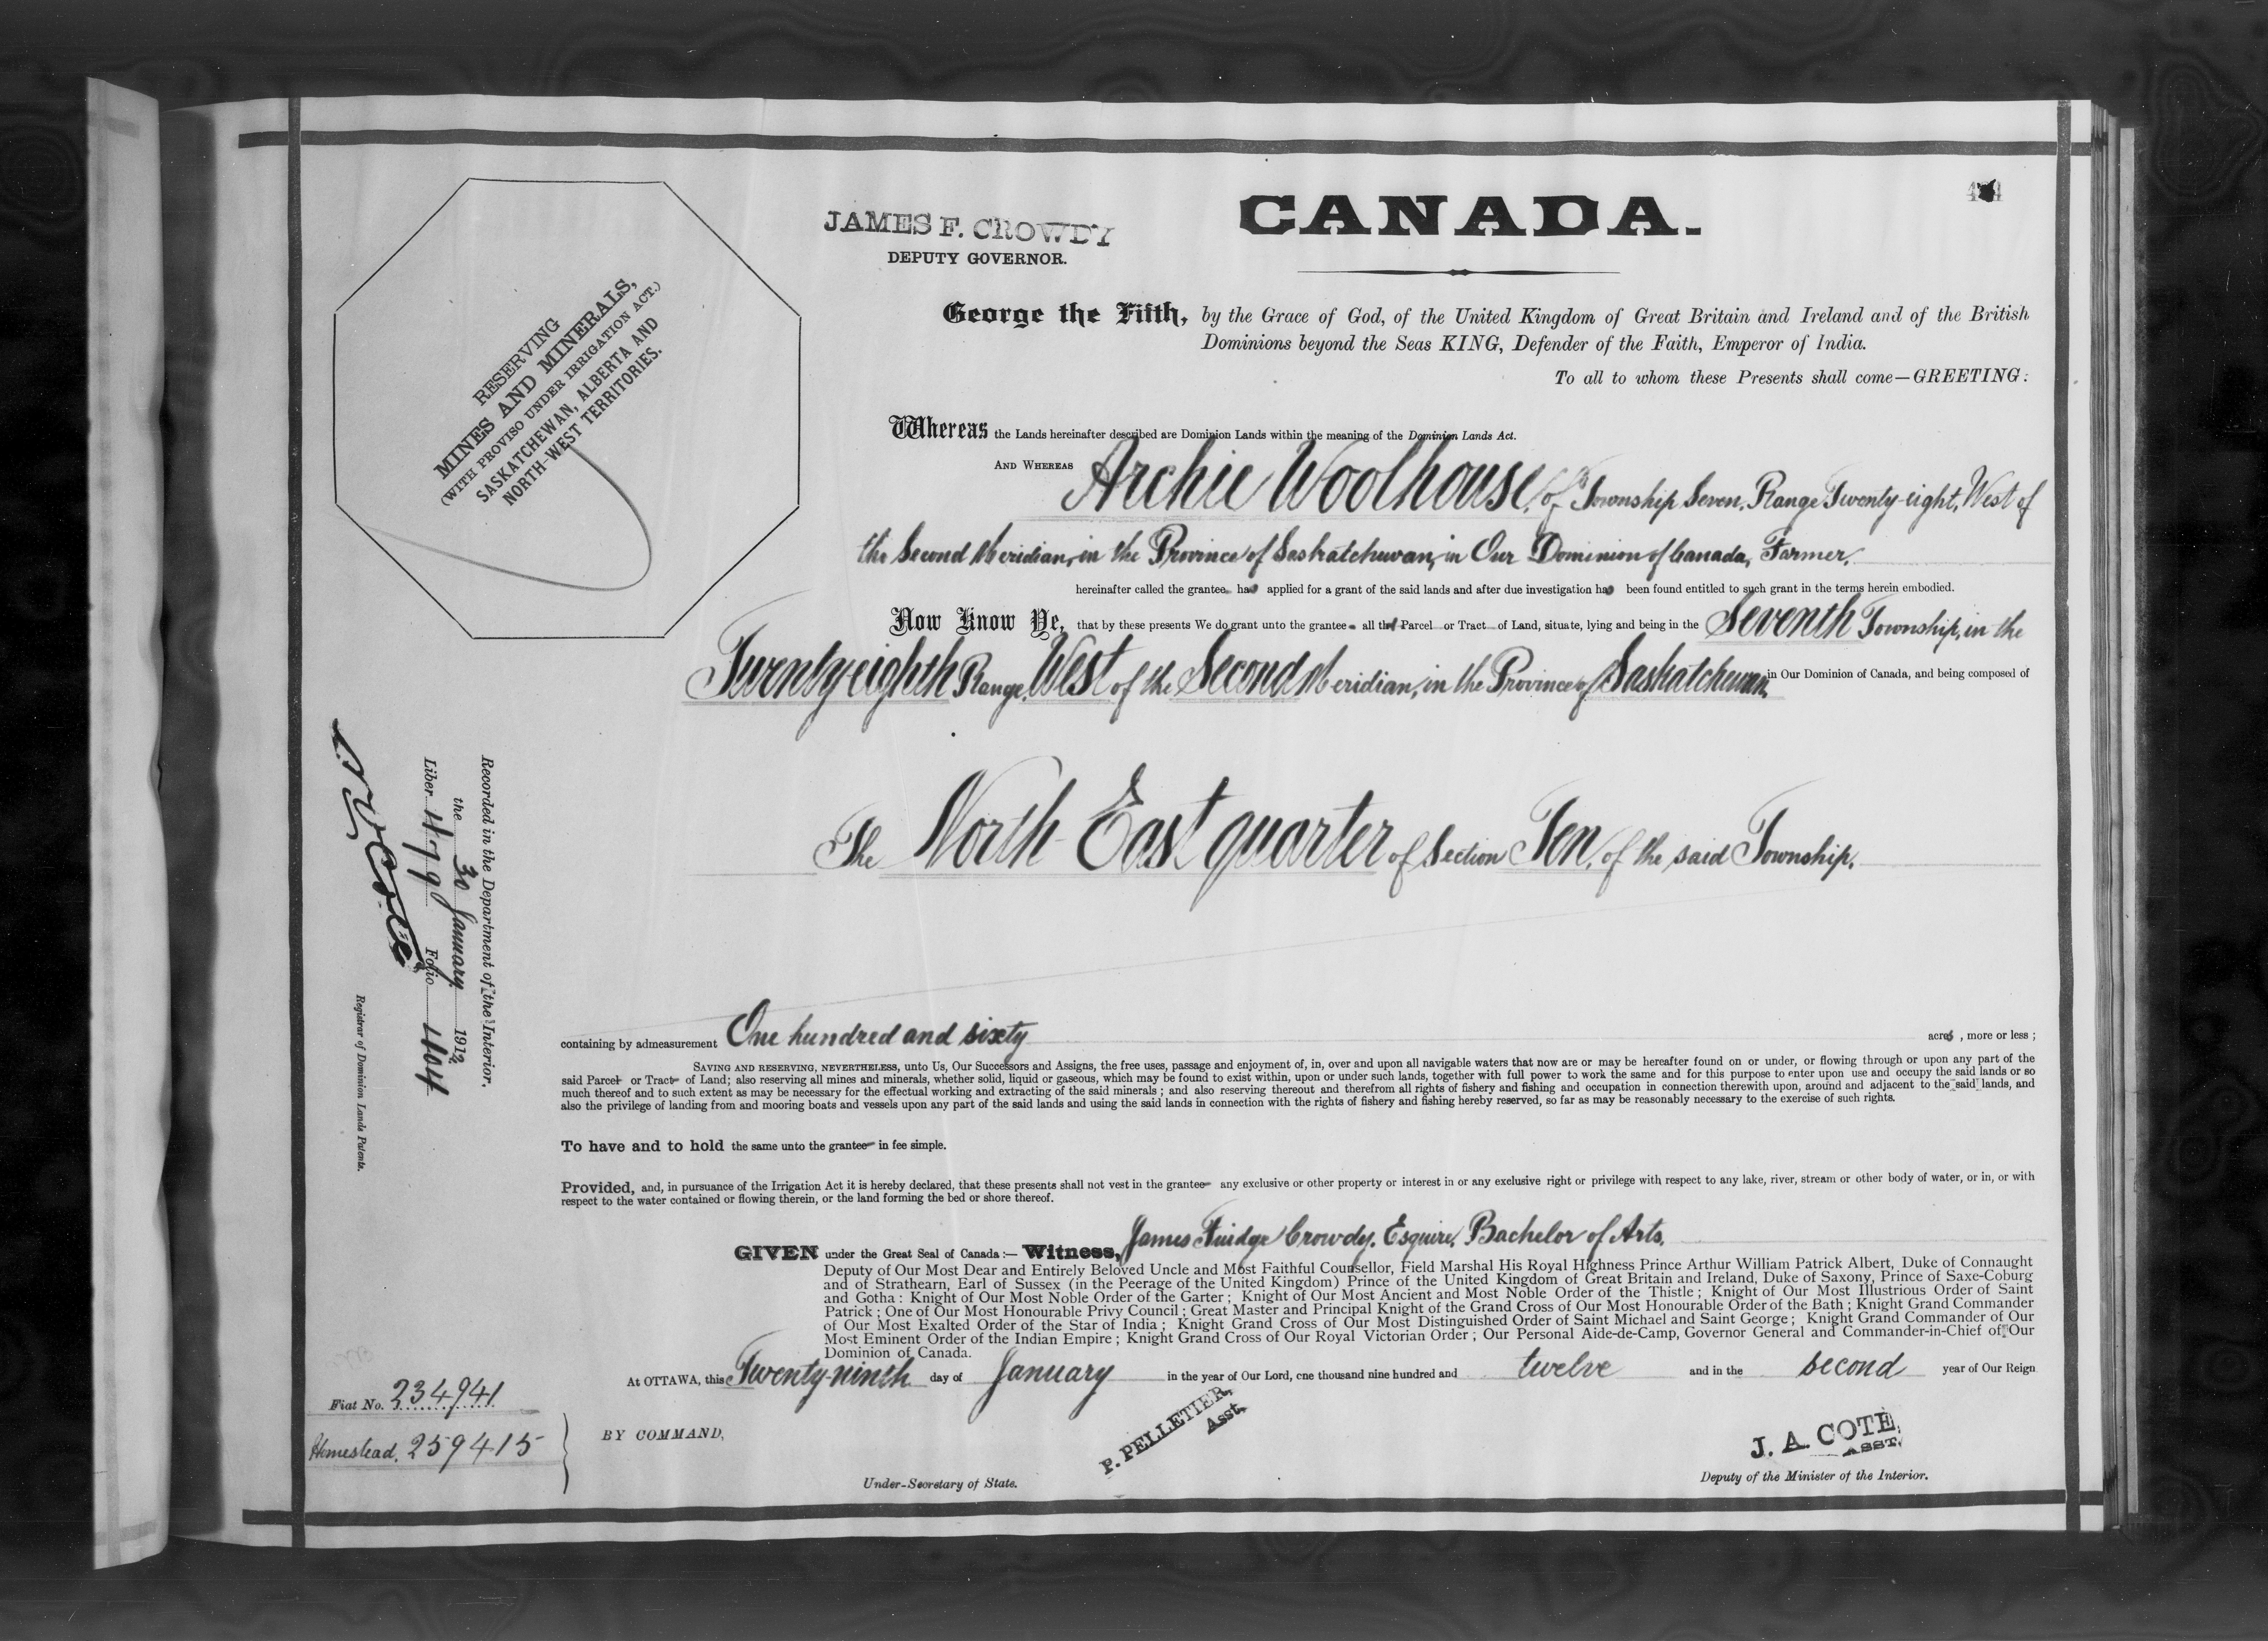 JAMES F. CROWDY
DEPUTY GOVERNOR.
CANADA.
RESERVING
MINES AND MINERALS,
(WITH PROVISO UNDER IRRIGATION ACT.)
SASKATCHEWAN, ALBERTA AND
NORTH-WEST TERRITORIES.
George the Fifth, by the Grace of God, of the United Kingdom of Great Britain and Ireland and of the British
Dominions beyond the Seas KING, Defender of the Faith, Emperor of India.
To all to whom these Presents shall come—GREETING:
Whereas the Lands hereinafter described are Dominion Lands within the meaning of the Dominion Lands Act.
AND WHEREAS Archie Woolhouse, of Township Seven, Range Twenty-eight, West of
the Second Meridian, in the Province of Saskatchewan, in Our Dominion of Canada, Farmer,
hereinafter called the grantee, has applied for a grant of the said lands and after due investigation has been found entitled to such grant in the terms herein embodied.
Now Know Ye, that by these presents We do grant unto the grantee all that Parcel or Tract of Land, situate, lying and being in the Seventh Township, in the
Twenty-eighth Range, West of the Second Meridian, in the Province of Saskatchewan, in Our Dominion of Canada, and being composed of
The North East quarter of Section Ten, of the said Township.
containing by admeasurement One hundred and sixty acres, more or less;
SAVING AND RESERVING, NEVERTHELESS, unto Us, Our Successors and Assigns, the free uses, passage and enjoyment of, in, over and upon all navigable waters that now are or may be hereafter found on or under, or flowing through or upon any part of the
said Parcel or Tract of Land; also reserving all mines and minerals, whether solid, liquid or gaseous, which may be found to exist within, upon or under such lands, together with full power to work the same and for this purpose to enter upon use and occupy the said lands or so
much thereof and to such extent as may be necessary for the effectual working and extracting of the said minerals; and also reserving thereout and therefrom all rights of fishery and fishing and occupation in connection therewith upon, around and adjacent to the said lands, and
also the privilege of landing from and mooring boats and vessels upon any part of the said lands and using the said lands in connection with the rights of fishery and fishing hereby reserved, so far as may be reasonably necessary to the exercise of such rights.
To have and to hold the same unto the grantee in fee simple.
Provided, and, in pursuance of the Irrigation Act it is hereby declared, that these presents shall not vest in the grantee any exclusive or other property or interest in or any exclusive right or privilege with respect to any lake, river, stream or other body of water, or in, or with
respect to the water contained or flowing therein, or the land forming the bed or shore thereof.
GIVEN under the Great Seal of Canada:— Witness, James Fuidge Crowdy, Esquire, Bachelor of Arts,
Deputy of Our Most Dear and Entirely Beloved Uncle and Most Faithful Counsellor, Field Marshal His Royal Highness Prince Arthur William Patrick Albert, Duke of Connaught
and of Strathearn, Earl of Sussex (in the Peerage of the United Kingdom) Prince of the United Kingdom of Great Britain and Ireland, Duke of Saxony, Prince of Saxe-Coburg
and Gotha: Knight of Our Most Noble Order of the Garter; Knight of Our Most Ancient and Most Noble Order of the Thistle; Knight of Our Most Illustrious Order of Saint
Patrick; One of Our Most Honourable Privy Council; Great Master and Principal Knight of the Grand Cross of Our Most Honourable Order of the Bath; Knight Grand Commander
of Our Most Exalted Order of the Star of India; Knight Grand Cross of Our Most Distinguished Order of Saint Michael and Saint George; Knight Grand Commander of Our
Most Eminent Order of the Indian Empire; Knight Grand Cross of Our Royal Victorian Order; Our Personal Aide-de-Camp, Governor General and Commander-in-Chief of Our
Dominion of Canada.
At OTTAWA, this Twenty-ninth day of January in the year of Our Lord, one thousand nine hundred and twelve and in the second year of Our Reign
BY COMMAND,
P. PELLETIER,
Asst.
Under-Secretary of State.
J. A. COTE,
ASST.
Deputy of the Minister of the Interior.
Recorded in the Department of the Interior,
the 30 January 1912
Liber 479 Folio 404
N O Coté
Registrar of Dominion Lands Patents.
Fiat No. 234941
Homestead. 259415